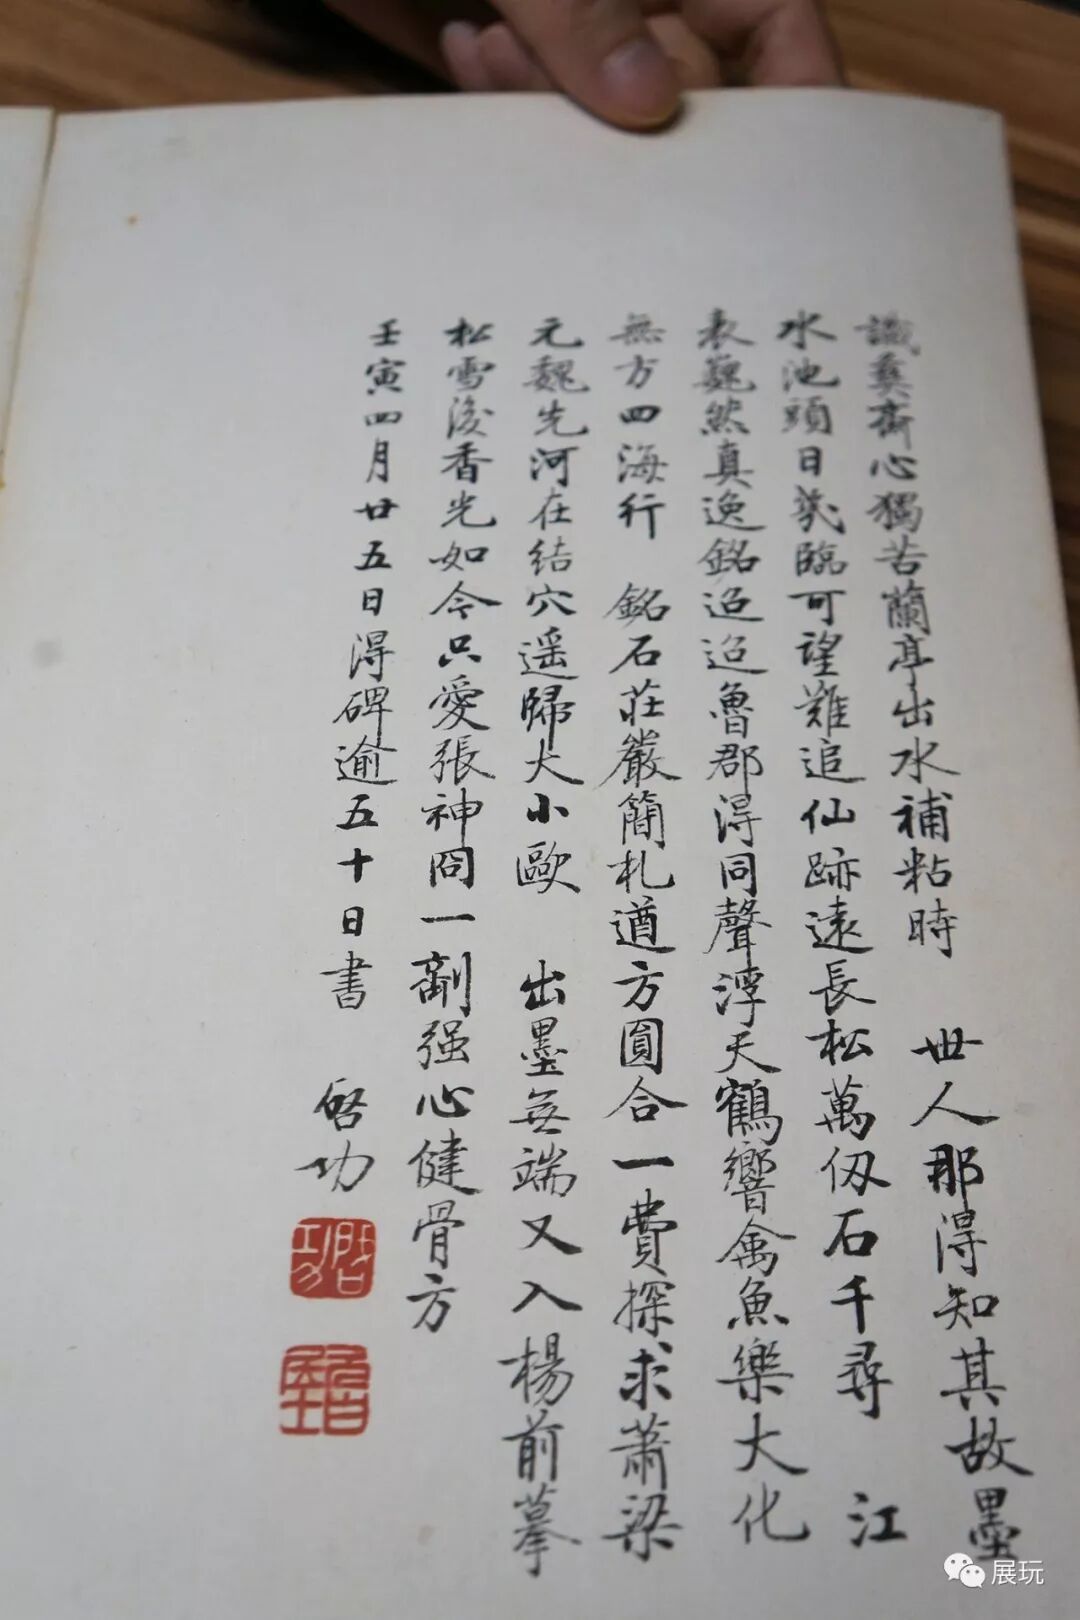 識彝齋心獨苦蘭亭出水補粘時　世人那得知其故墨
水池頭日幾臨可望難追仙跡遠長松萬仞石千尋　江
表巍然真逸銘迢迢魯郡得同聲浮天鶴響禽魚樂大化
無方四海行　銘石莊嚴簡札遒方圓合一費探求蕭梁
元魏先河在結穴遥歸大小歐　出墨無端又入楊前摹
松雪後香光如今只愛張神冏一劑强心健骨方
壬寅四月廿五日得碑逾五十日書　啓功
啓功
展玩